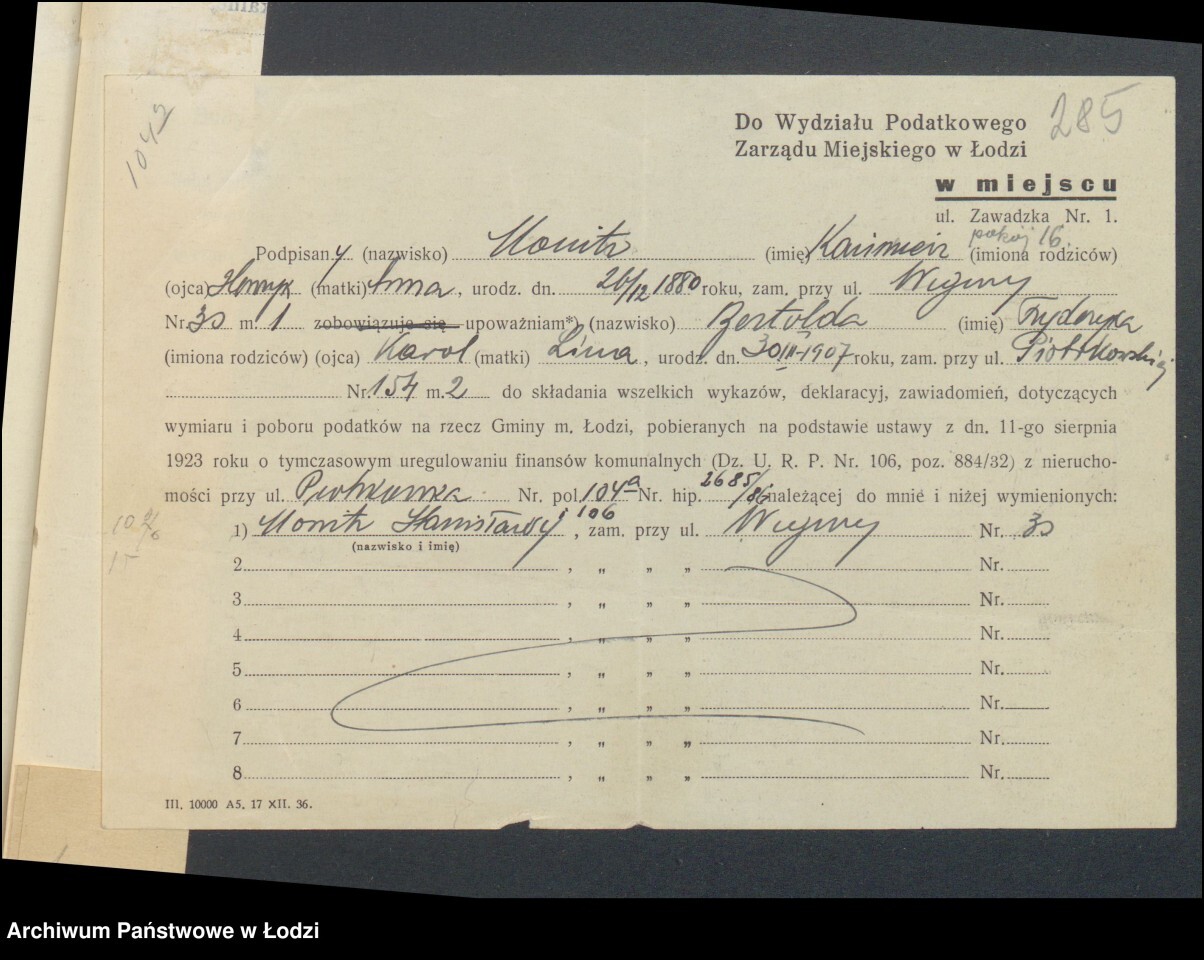 1042
285
Do Wydziału Podatkowego
Zarządu Miejskiego w Łodzi
w miejscu
ul. Zawadzka Nr. 1.
pokój 16
Podpisany (nazwisko) Monitz (imię) Kazimierz (imiona rodziców)
(ojca) Henryk (matki) Anna, urodz. dn. 26/12 1880 roku, zam. przy ul.
Nr. 30 m. 1 zobowiązuje się upoważniam*) (nazwisko) Bertolda (imię) Fryderyka
(imiona rodziców) (ojca) Karol (matki) Lina, urodz. dn. 30 III-1907 roku, zam. przy ul. Piotrkowskiej
Nr. 154 m. 2 do składania wszelkich wykazów, deklaracyj, zawiadomień, dotyczących
wymiaru i poboru podatków na rzecz Gminy m. Łodzi, pobieranych na podstawie ustawy z dn. 11-go sierpnia
1923 roku o tymczasowym uregulowaniu finansów komunalnych (Dz. U. R. P. Nr. 106, poz. 884/32) z nierucho-
mości przy ul. Piotrkowska Nr. pol. 104a i 106 Nr. hip. 2685/86 należącej do mnie i niżej wymienionych:
1) Monitz Stanisławy, zam. przy ul. Nr. 30
(nazwisko i imię)
2 , „ „ „ Nr.
3 , „ „ „ Nr.
4 , „ „ „ Nr.
5 , „ „ „ Nr.
6 , „ „ „ Nr.
7 , „ „ „ Nr.
8 , „ „ „ Nr.
III. 10000 A5. 17 XII. 36.
Archiwum Państwowe w Łodzi